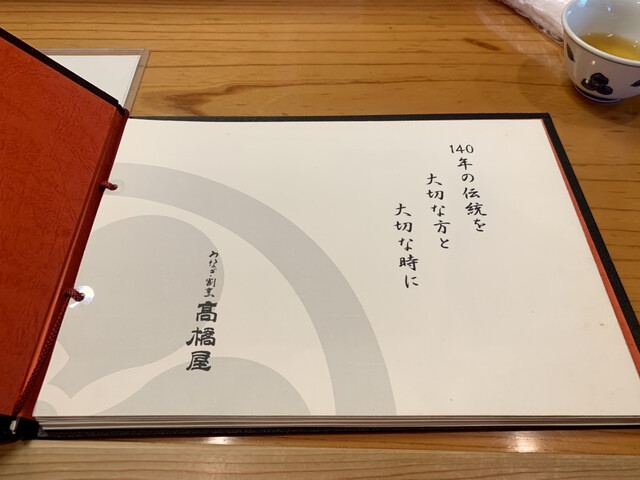 140年の伝統を
大切な方と
大切な時に
うなぎ・割烹
高橋屋